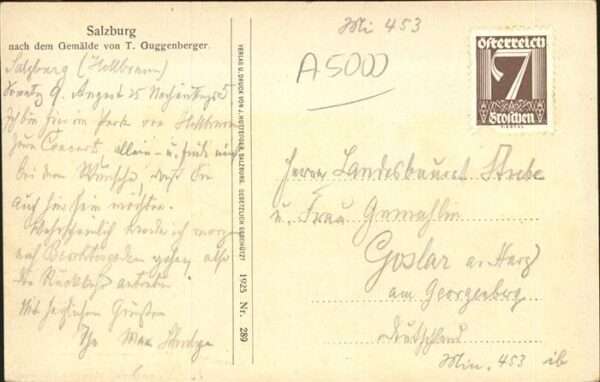 Salzburg
nach dem Gemälde von T. Guggenberger.
Salzburg (Hellbrunn)
Sonntag 9. August 25 Nachmittags 5
Ich bin hier im Parke von Hellbrunn
zum Concert allein - u.
bei dem Wunsche, daß Sie
auch hier sein möchten.
Wahrscheinlich werde ich morgen
nach Berchtesgaden gehen, also
die Rückkehr antreten.
Mit herzlichen Grüßen
Ihr Max
VERLAG U. DRUCK VON J. HUTTEGGER, SALZBURG. GESETZLICH GESCHÜTZT 1925 Nr. 289
Mi 453
A5000
Österreich
7
Groschen
Herrn Landesbaurat
u. Frau Gemahlin
Goslar a. Harz
am Georgenberg
Deutschland
Min. 453